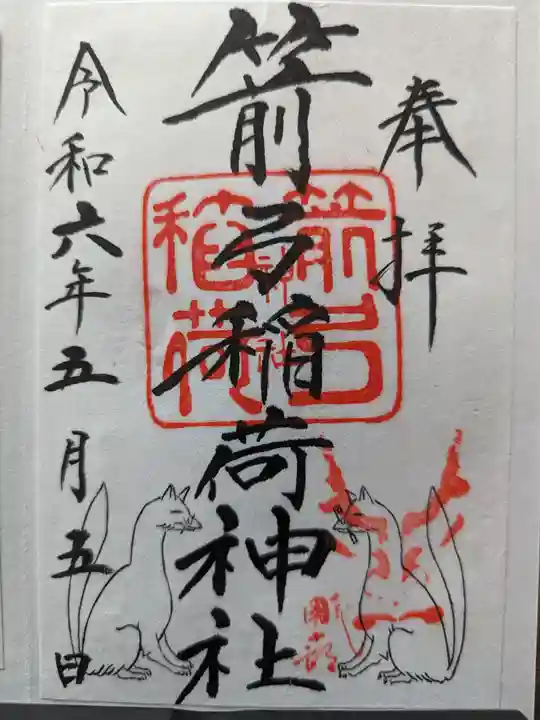 奉拝
箭弓稲荷神社
箭弓稲荷
神社
令和六年五月五日